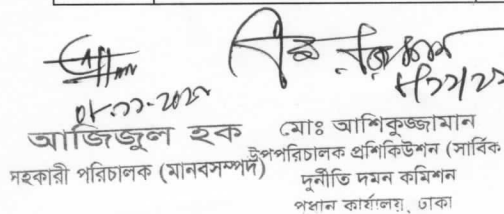 আজিজুল হক
সহকারী পরিচালক (মানবসম্পদ)
মোঃ আশিকুজ্জামান
উপপরিচালক প্রশিকিউশন (সার্বিক
দুর্নীতি দমন কমিশন
প্রধান কার্যালয়, ঢাকা